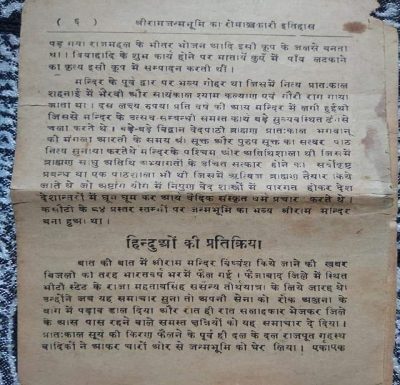 ( ६ ) श्रीरामजन्मभूमि का रोमाञ्चकारी इतिहास
बह गया राजमहल के भीतर भोजन आदि इसी कूप के जलसे बनता
था। विवाहादि के शुभ कार्य होने पर मातायें कुयें में पाँव लटकाने
का कृत्य इसी कूप में सम्पादन करती थीं।
मन्दिर के पूर्व द्वार पर भव्य गोहर था जिसमें नित्य प्रातःकाल
शहनाई में भैरवी और सायंकाल श्याम कल्याण एवं गौरी राग गाया
जाता था। दस लक्ष रुपया प्रति वर्ष की आय मन्दिर में लगी हुई थी
जिससे मन्दिर के उत्सव सम्बन्धी समस्त कार्य बड़े सुव्यवस्थित ढंग से
चला करते थे। बड़े-बड़े विद्वान वेदपाठी ब्राह्मण प्रातःकाल भगवान्
की मंगला आरती के समय श्री सूक्त और पुरुष सूक्त का सस्वर पाठ
नित्य सुनाया करते थे मन्दिर के पश्चिम ओर अतिथिशाला थी जिसमें
ब्राह्मण साधु अतिथि अभ्यागतों के उचित सत्कार होने का सर्वोत्कृष्ट
प्रबन्ध था एक पाठशाला भी थी जिसमें ब्राह्मण तैयार किये
जाते थे जो अष्टांग योग में निपुण वेद शास्त्रों में पारंगत होकर देश
देशान्तरों में घूम घूम कर आर्य वैदिक संस्कृत धर्म प्रचार करते थे।
कसौटी के ८४ प्रस्तर स्तम्भों पर जन्मभूमि का भव्य श्रीराम मन्दिर
बना हुआ था।
हिन्दुओं की प्रतिक्रिया
बात की बात में श्रीराम मन्दिर विध्वंश किये जाने की खबर
बिजली की तरह भारतवर्ष भर में फैल गई। फैजाबाद जिले में स्थित
भीटी स्टेट के राजा महताबसिंह ससैन्य तीर्थयात्रा के लिये जारहे थे
उन्होंने जब यह समाचार सुना तो अपनी सेना को रोक अछना के
बाग में पड़ाव डाल दिया और रात ही रात सलाहकार भेजकर जिले
के आस पास रहने वाले समस्त क्षत्रियों को यह समाचार दे दिया।
प्रातःकाल सूर्य की किरण फैलने के पूर्व ही दल के दल राजपूत गृहस्थ
आकर चारों ओर से जन्मभूमि को घेर लिया। एकाएक